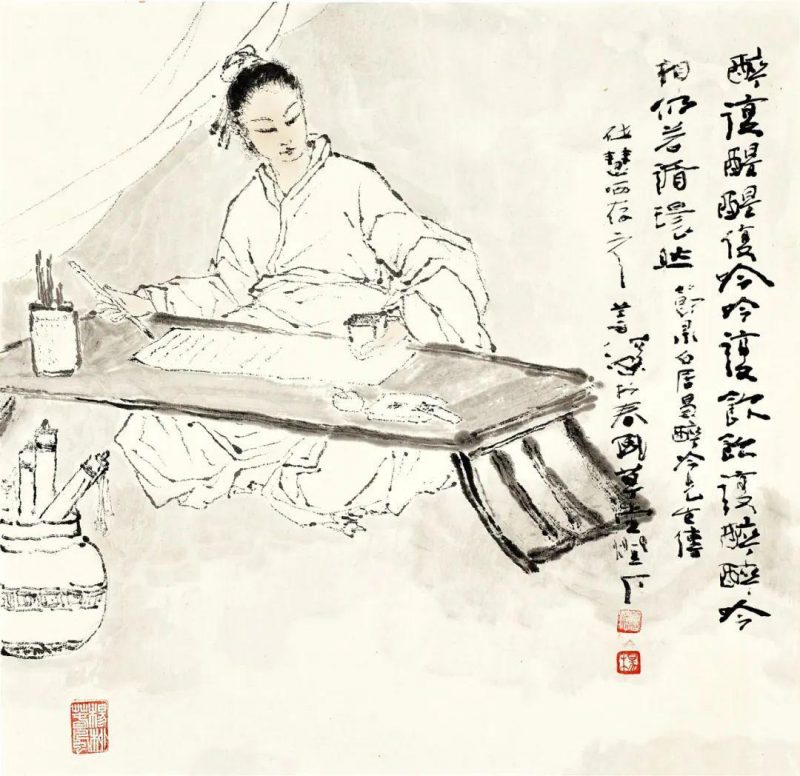 醉復醒醒復吟吟復飲飲復醉醉吟
相仍若循環然 節录白居易醉吟先生傳
仕慧哂存之 於春風草堂燈下